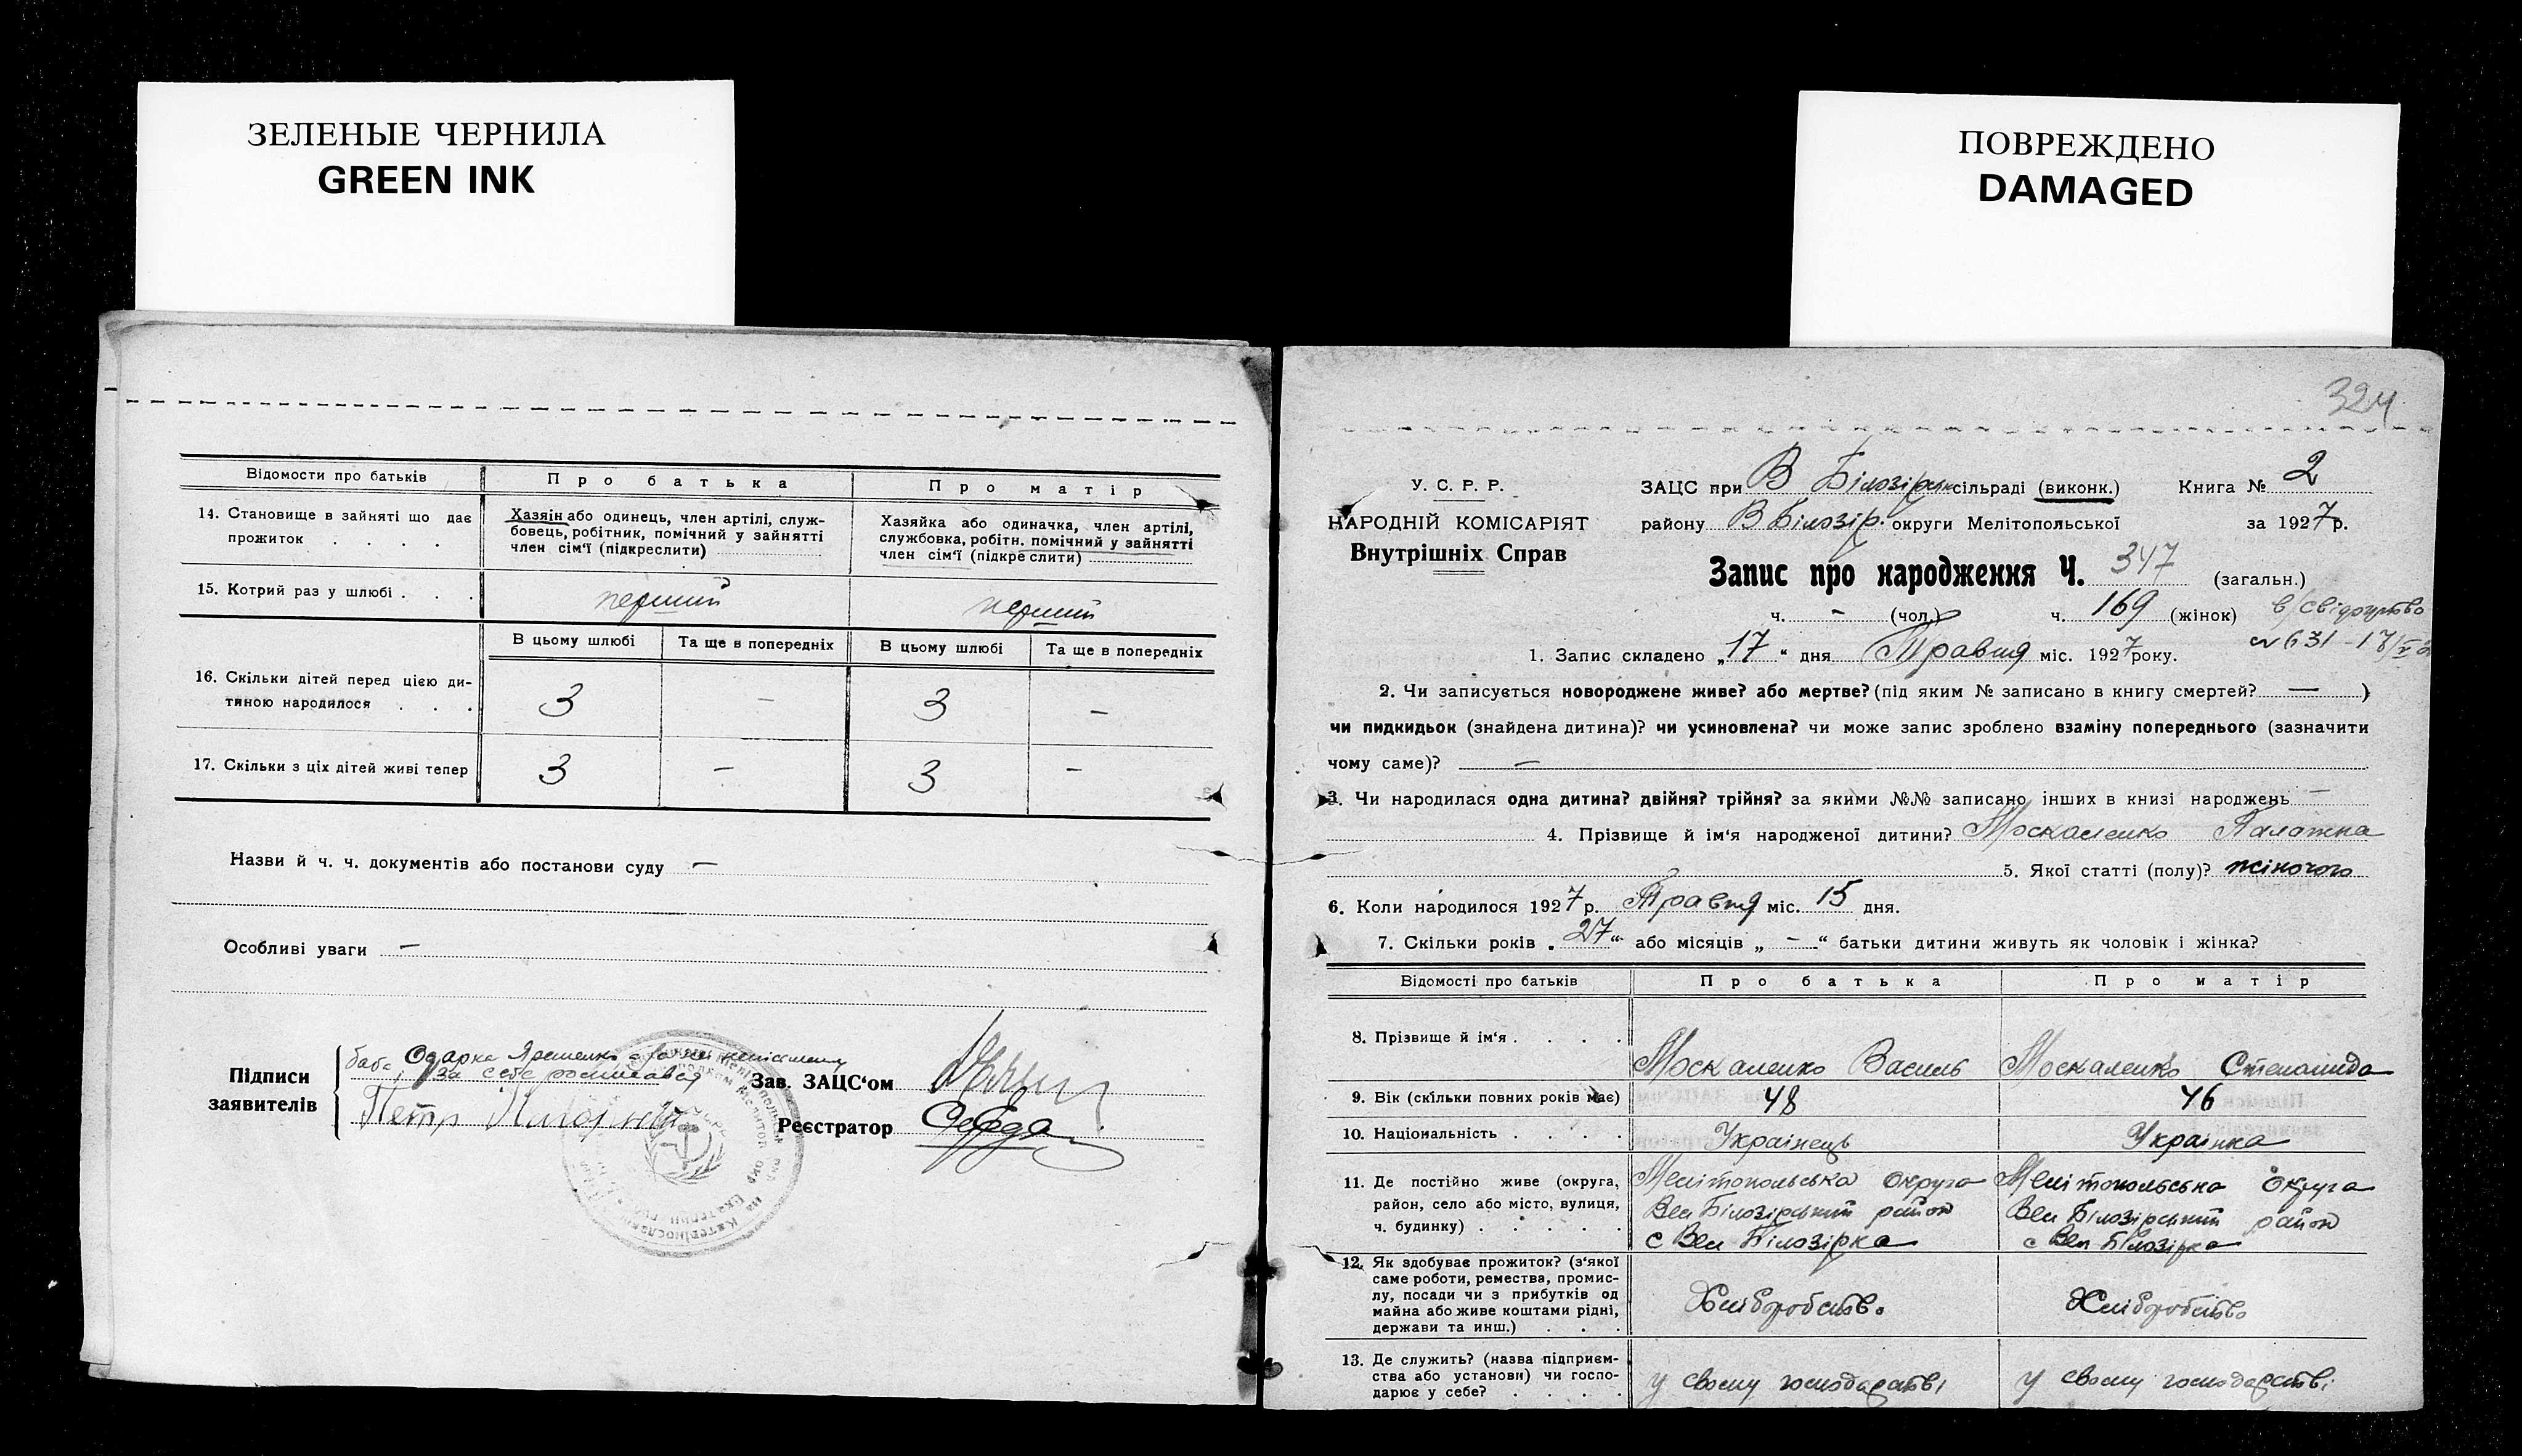 ЗЕЛЕНЫЕ ЧЕРНИЛА
GREEN INK
ПОВРЕЖДЕНО
DAMAGED
Відомости про батьків Про батька Про матір
14. Становище в зайняті що дає прожиток . . . .
Хазяін або одинець, член артілі, служ-
бовець, робітник, помічний у зайнятті
член сім'ї (підкреслити)
Хазяйка або одиначка, член артілі,
службовка, робітн. помічний у зайнятті
член сім'ї (підкреслити)
15. Котрий раз у шлюбі . . . перший перший
В цьому шлюбі Та ще в попередніх В цьому шлюбі Та ще в попередніх
16. Скільки дітей перед цією ди-
тиною народилося . . . 3 — 3 —
17. Скільки з ціх дітей живі тепер 3 — 3 —
Назви й ч. ч. документів або постанови суду —
Особливі уваги —
Підписи
заявителів
баба Одарка
за себе
Петр
Зав. ЗАЦС'ом
Реєстратор
324
У. С. Р. Р.
НАРОДНІЙ КОМІСАРІЯТ
Внутрішніх Справ
ЗАЦС при В Білозірськ сільраді (виконк.) Книга № 2
району В Білозір. округи Мелітопольської за 1927 р.
Запис про народження Ч. 347 (загальн.)
ч. – (чол.) ч. 169 (жінок)
в/свідоцтво
№ 631 - 17/V
1. Запис складено „17“ дня Травня міс. 1927 року.
2. Чи записується новороджене живе? або мертве? (під яким № записано в книгу смертей? — )
чи пидкидьок (знайдена дитина)? чи усиновлена? чи може запис зроблено взаміну попереднього (зазначити
чому саме)? —
3. Чи народилася одна дитина? двійня? трійня? за якими №№ записано інших в книзі народжень —
4. Прізвище й ім'я народженої дитини? Москаленко Палажка
5. Якої статті (полу)? жіночого
6. Коли народилося 1927 р. Травня міс. 15 дня.
7. Скільки років „27“ або місяців „ – “ батьки дитини живуть як чоловік і жінка?
Відомості про батьків Про батька Про матір
8. Прізвище й ім'я . . . . Москаленко Василь Москаленко Степанида
9. Вік (скільки повних років має) 48 46
10. Національність . . . . Українець Українка
11. Де постійно живе (округа,
район, село або місто, вулиця,
ч. будинку) . . . . .
Мелітопольська округа
Вел Білозірський район
с Вел Білозірка
Мелітопольська округа
Вел Білозірський район
с Вел Білозірка
12. Як здобуває прожиток? (з'якої
саме роботи, ремества, промис-
лу, посади чи з прибутків од
майна або живе коштами рідні,
держави та инш.) . . .
Хліборобство
Хліборобство
13. Де служить? (назва підприєм-
ства або установи) чи госпо-
дарює у себе? . . . .
у своему господарстві
у своему господарстві